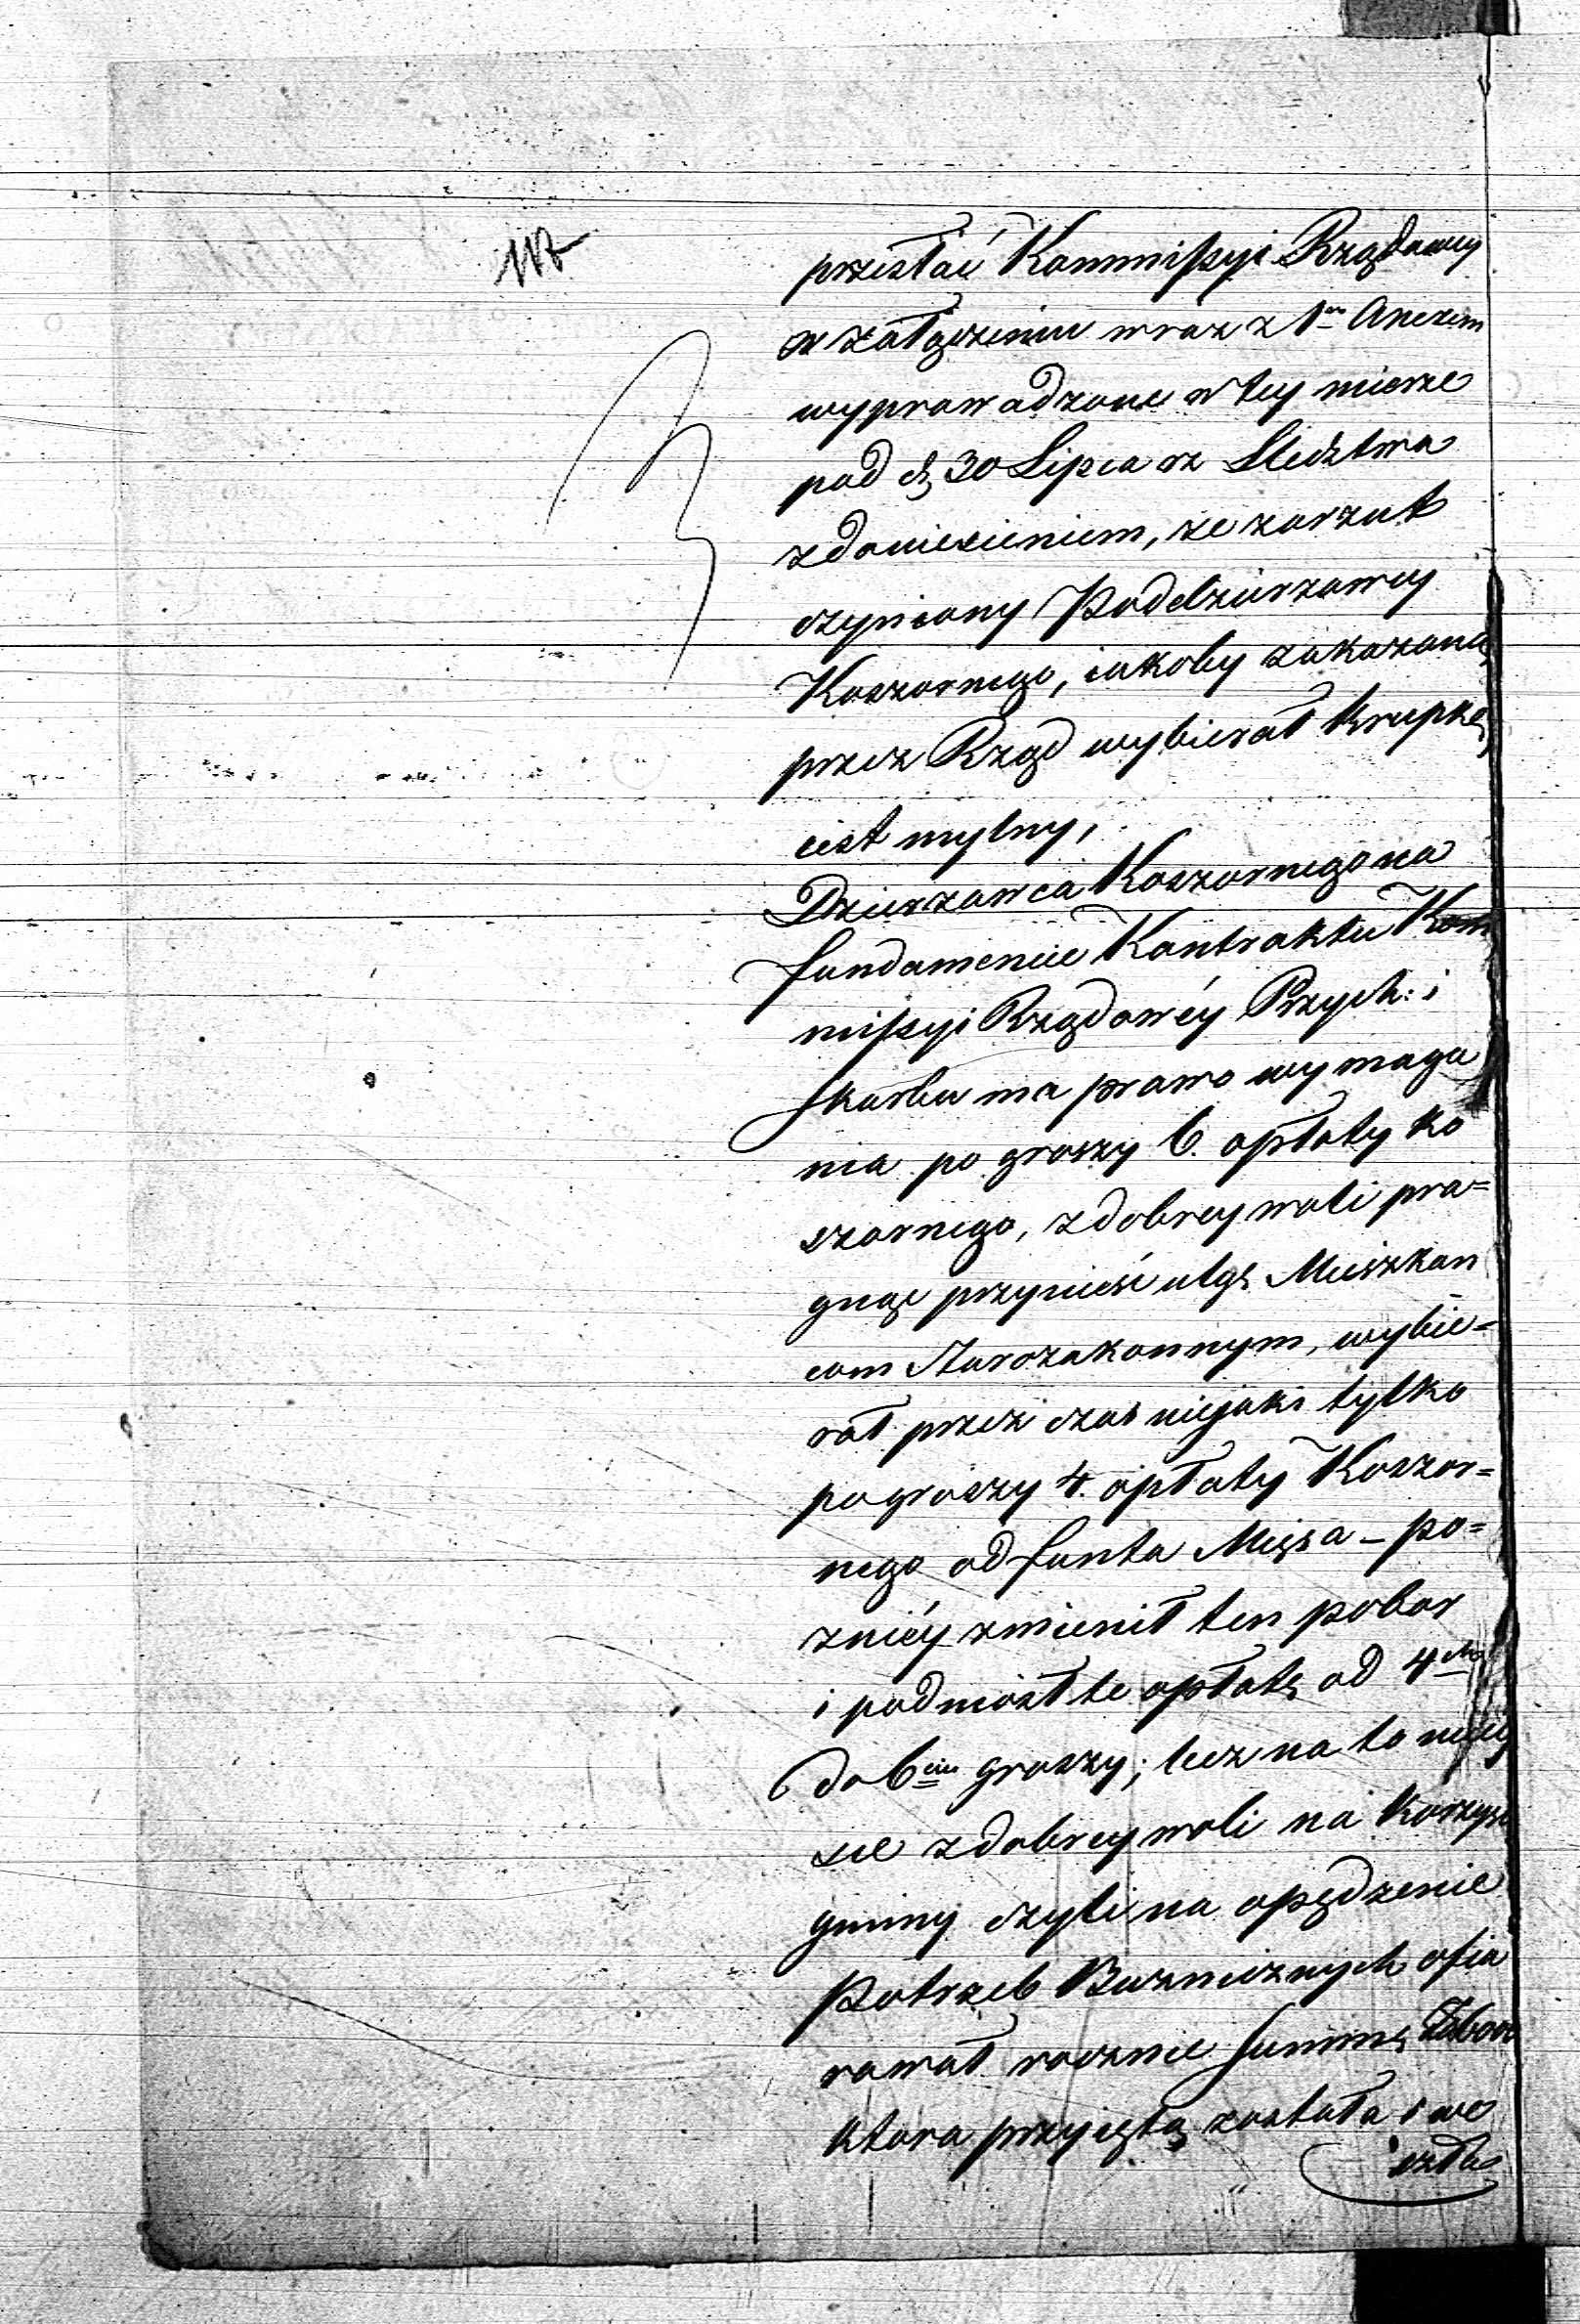 117
przesłać Kommissyi Rządowey
w załączeniu wraz z 1m Anexem
wyprowadzone w tey mierze
pod d. 30 Lipca rz Sledztwa
z doniesieniem, ze zarzut
czyniony Poddzierzawcy
Koszernego, iakoby zakazaną
przez Rząd wybierał Krupkę,
iest mylny,
Dzierzawca Koszernego na
fundamencie Kontraktu Kom
missyi Rządowéy Przych: i
Skarbu ma prawo wymaga
nia po groszy 6. opłaty ko
szernego, z dobrey woli pra=
gnąc przynieść ulgę Mieszkan
com Starozakonnym, wybie=
rał przez czas niejaki tylko
po groszy 4. opłaty Koszer=
nego od funta Mięsa – po=
zniéy zmienił ten pobor
i podniósł te opłatę od 4ch
do 6ciu groszy; lecz na to
z dobrey woli na Korzyść
gminy czyli na opędzenie
potrzeb Buznicznych ofia
rował rocznie Summę
ktora przyjętą została i we
szła